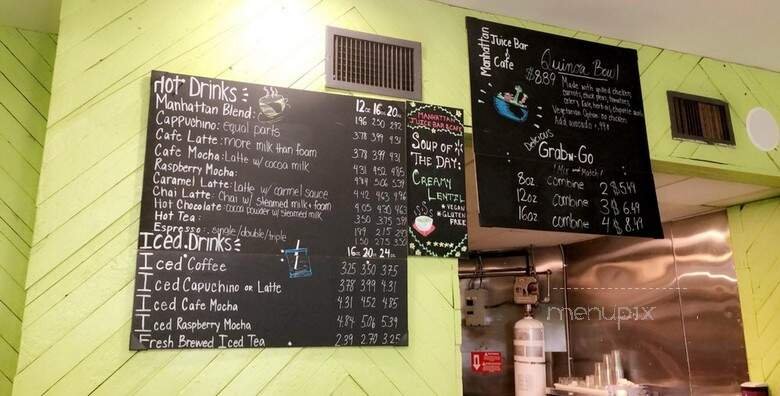 Hot Drinks:
12oz 16oz 20oz
Manhattan Blend: 1.96 2.50 2.92
Cappuchino: Equal parts 3.78 3.99 4.31
Cafe Latte: more milk than foam 3.78 3.99 4.31
Cafe Mocha: Latte w/ cocoa milk
Raspberry Mocha: 4.31 4.52 4.85
Caramel Latte: Latte w/ carmel sauce 4.84 5.06 5.39
Chai Latte: Chai w/ steamed milk + foam 4.42 4.63 4.96
Hot Chocolate: cocoa powder w/ steamed milk 4.05 4.30 4.63
Hot Tea: 3.50 3.75
Espresso: single/double/triple 1.89 2.15 2.43
1.50 2.75 3.50
Iced Drinks:
16oz 20oz 24oz
Iced Coffee 3.25 3.50 3.75
Iced Capuchino or Latte 3.78 3.99 4.31
Iced Cafe Mocha 4.31 4.52 4.85
Iced Raspberry Mocha 4.84 5.06 5.39
Fresh Brewed Iced Tea 2.39 2.70 3.25
Manhattan
Juice Bar & Cafe
Soup of
the Day:
Creamy
Lentil
• Vegan
• Gluten
Free
Manhattan
Juice Bar
&
Cafe
Quinoa Bowl
$8.89
Made with grilled chicken,
carrots, chick peas, tomatoes,
celery, kale, herb oil, chipotle sauce
Vegetarian Option no chicken
Add avocado +.99¢
Delicious
Grab-N-Go
Mix and Match!
8oz combine 2 $5.49
12oz combine 3 $6.49
16oz combine 4 $8.49
menupix